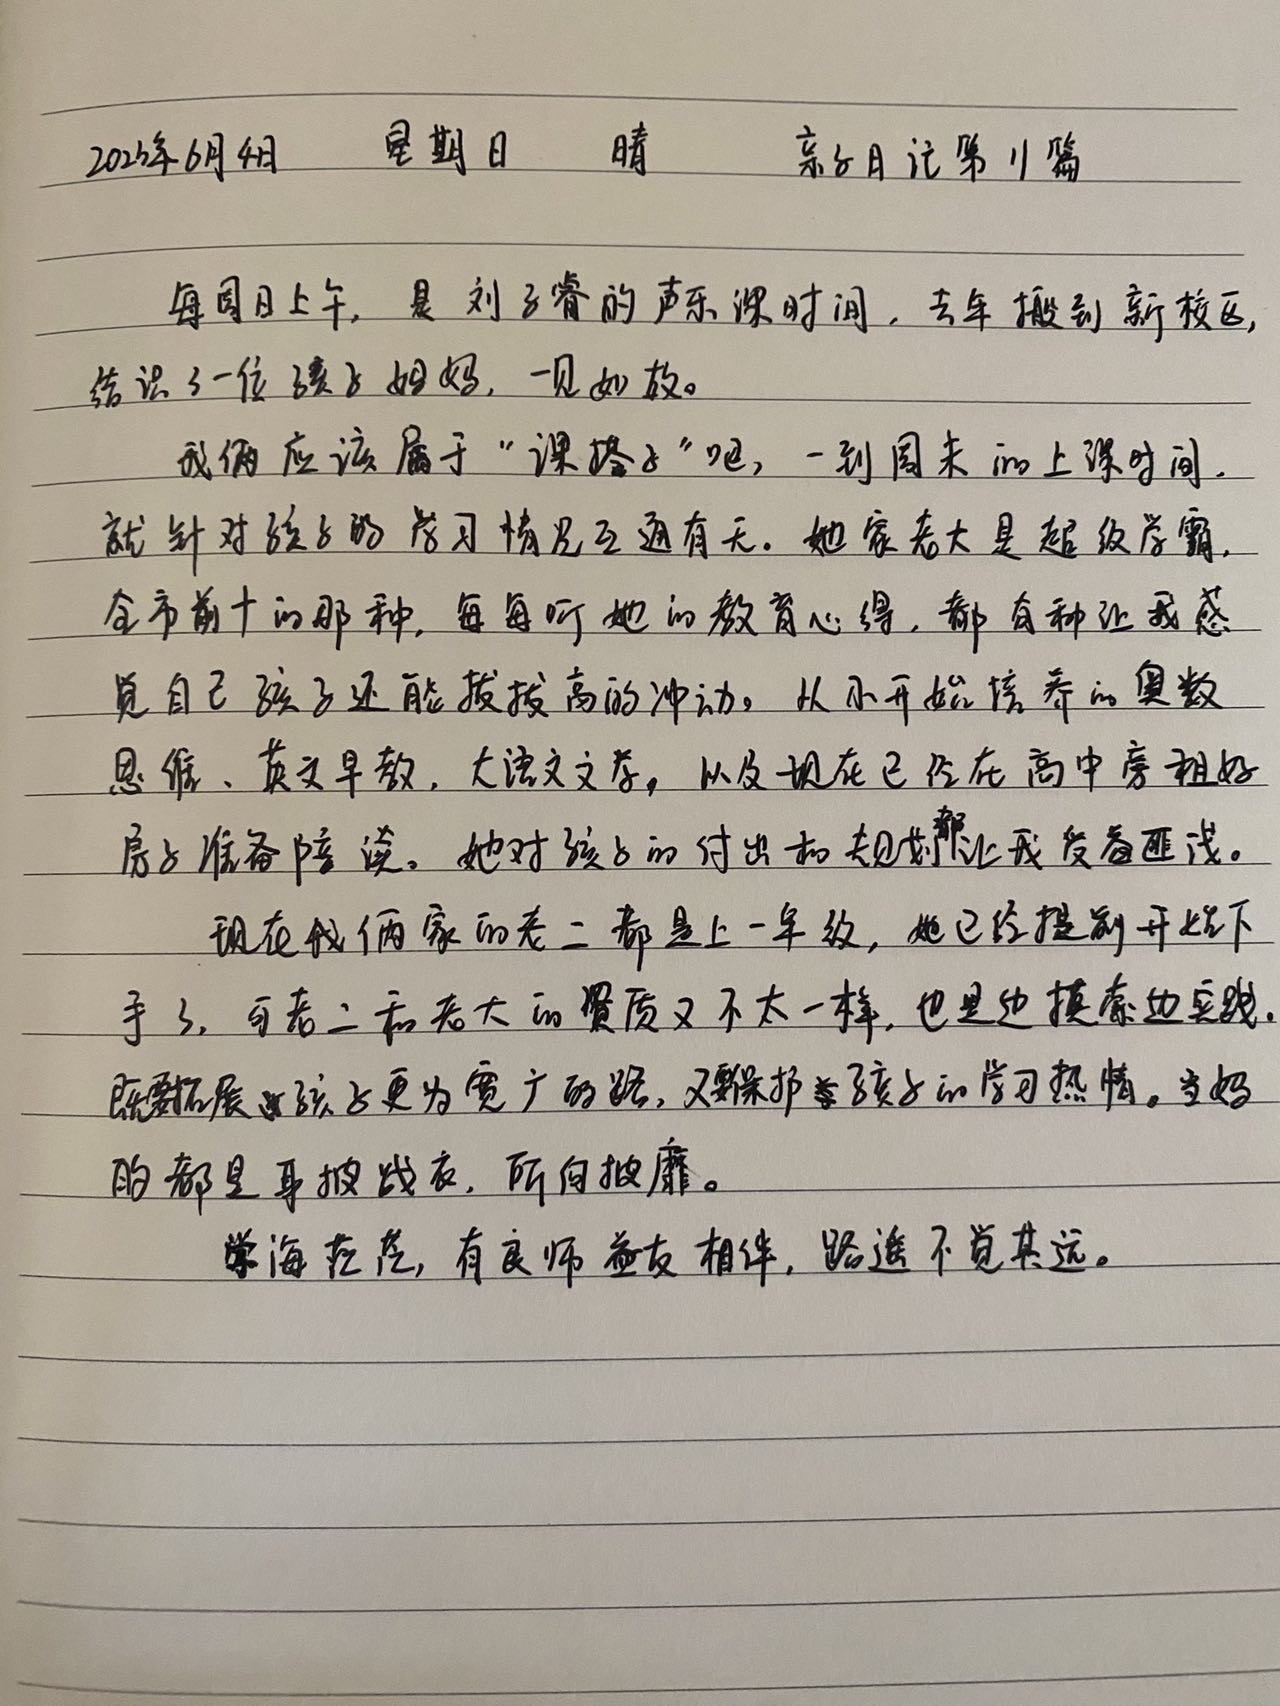 2023年6月4日 星期日 晴 亲子日记第11篇
每周日上午，是刘子睿的声乐课时间，去年搬到新校区，
结识了一位孩子妈妈，一见如故。
我俩应该属于“课搭子”吧，一到周末的上课时间，
就针对孩子的学习情况互通有无。她家老大是超级学霸，
全市前十的那种，每每听她的教育心得，都有种让我感
觉自己孩子还能拔拔高的冲动。从小开始培养的奥数
思维、英文早教，大语文文学，以及现在已经在高中旁租好
房子准备陪读。她对孩子的付出和规划都让我受益匪浅。
现在我俩家的老二都是上一年级，她已经提前开始下
手了，可老二和老大的资质又不太一样，也是边摸索边实践。
既要拓展孩子更为宽广的路，又要保护孩子的学习热情。当妈
的都是身披战衣，所向披靡。
学海茫茫，有良师益友相伴，路遥不觉其远。